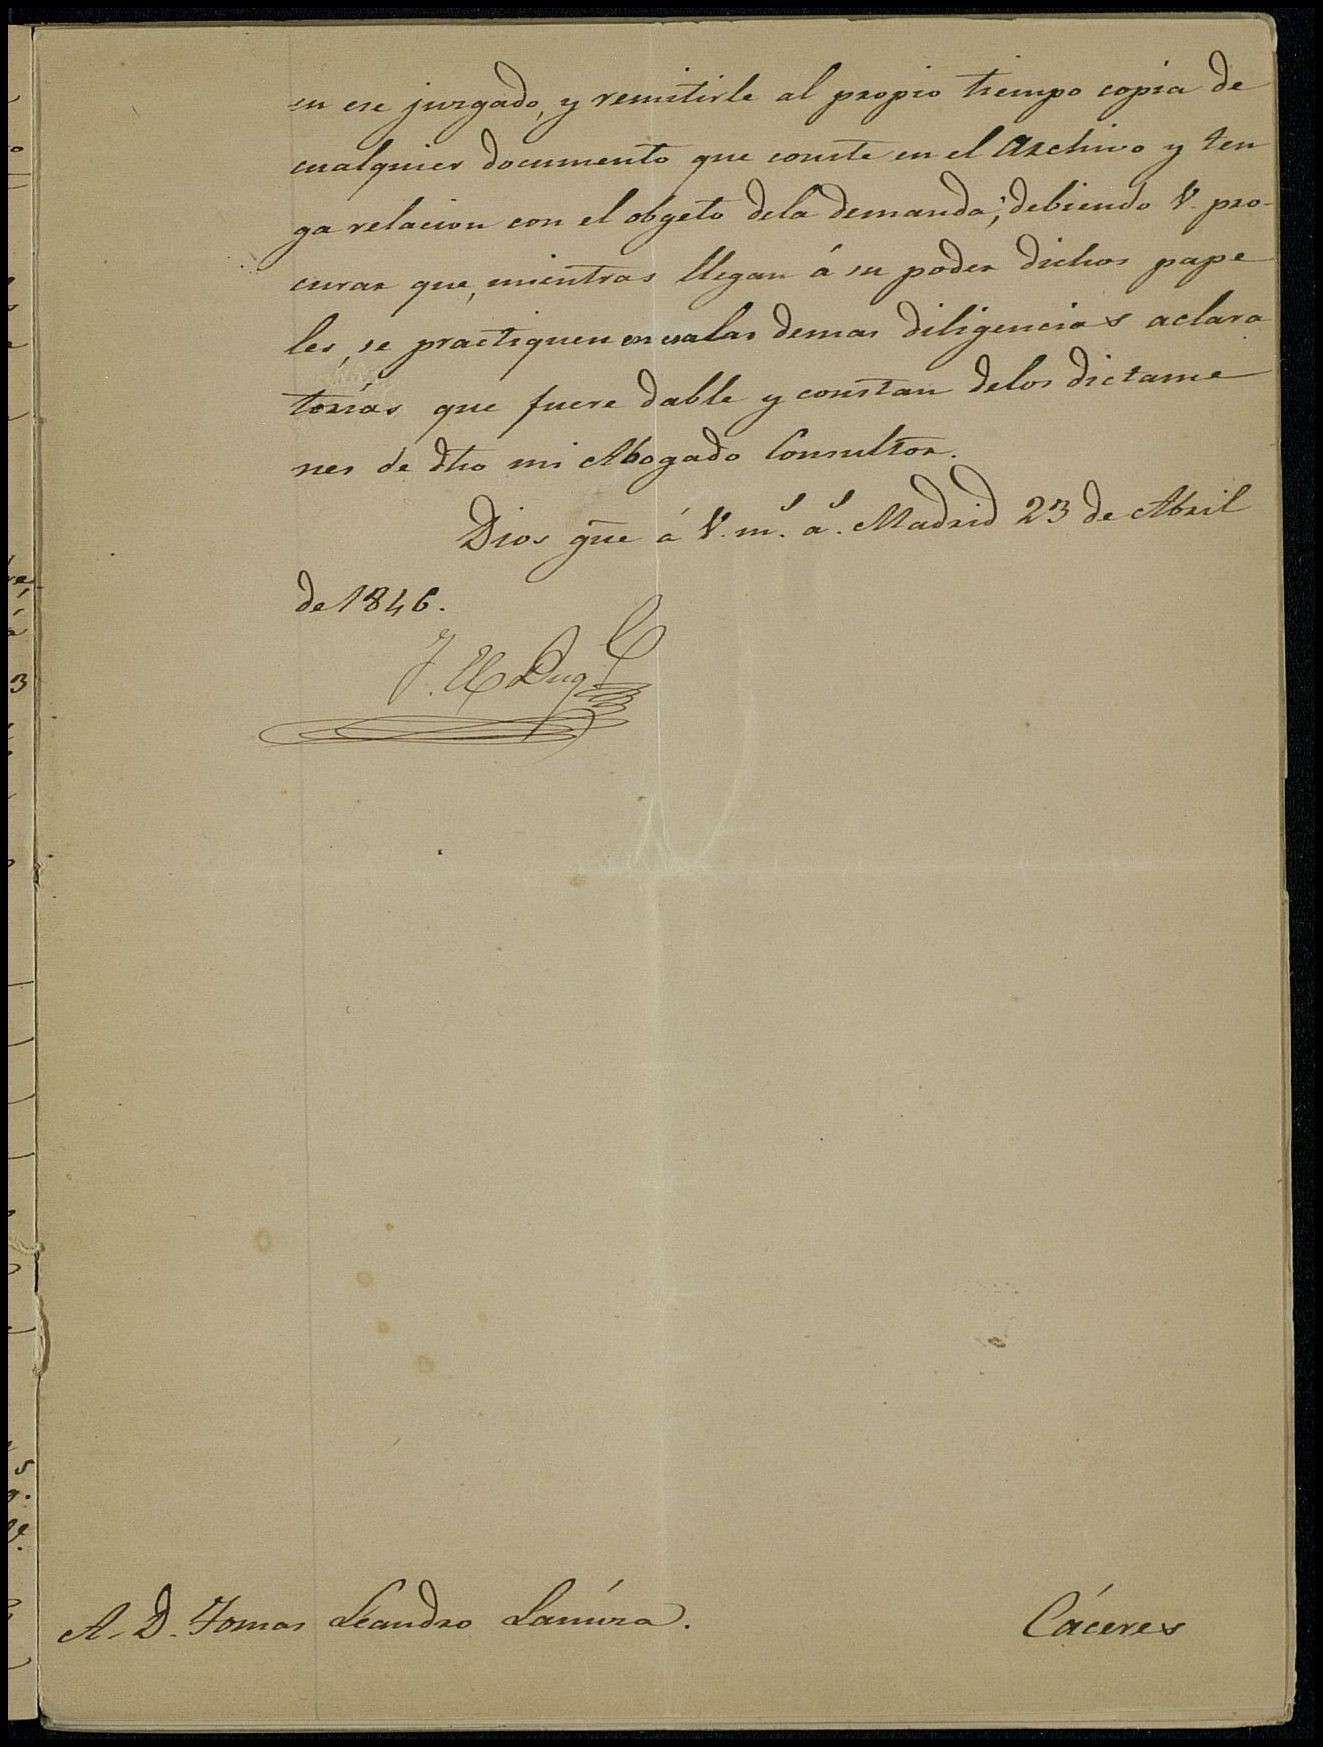 en ese juzgado, y remitirle al propio tiempo copia de
cualquier documento que conste en el Archivo y ten
ga relacion con el objeto dela demanda; debiendo V. pro-
curar que, mientras llegan á su poder dichos pape
les, se practiquen las demas diligencias aclara
torias que fuere dable y constan delos dictame
nes de dho mi Abogado Consultor.
Dios gūe á V. m.s a.s Madrid 23 de Abril
de 1846.
A. D. Tomas Leandro
Cáceres